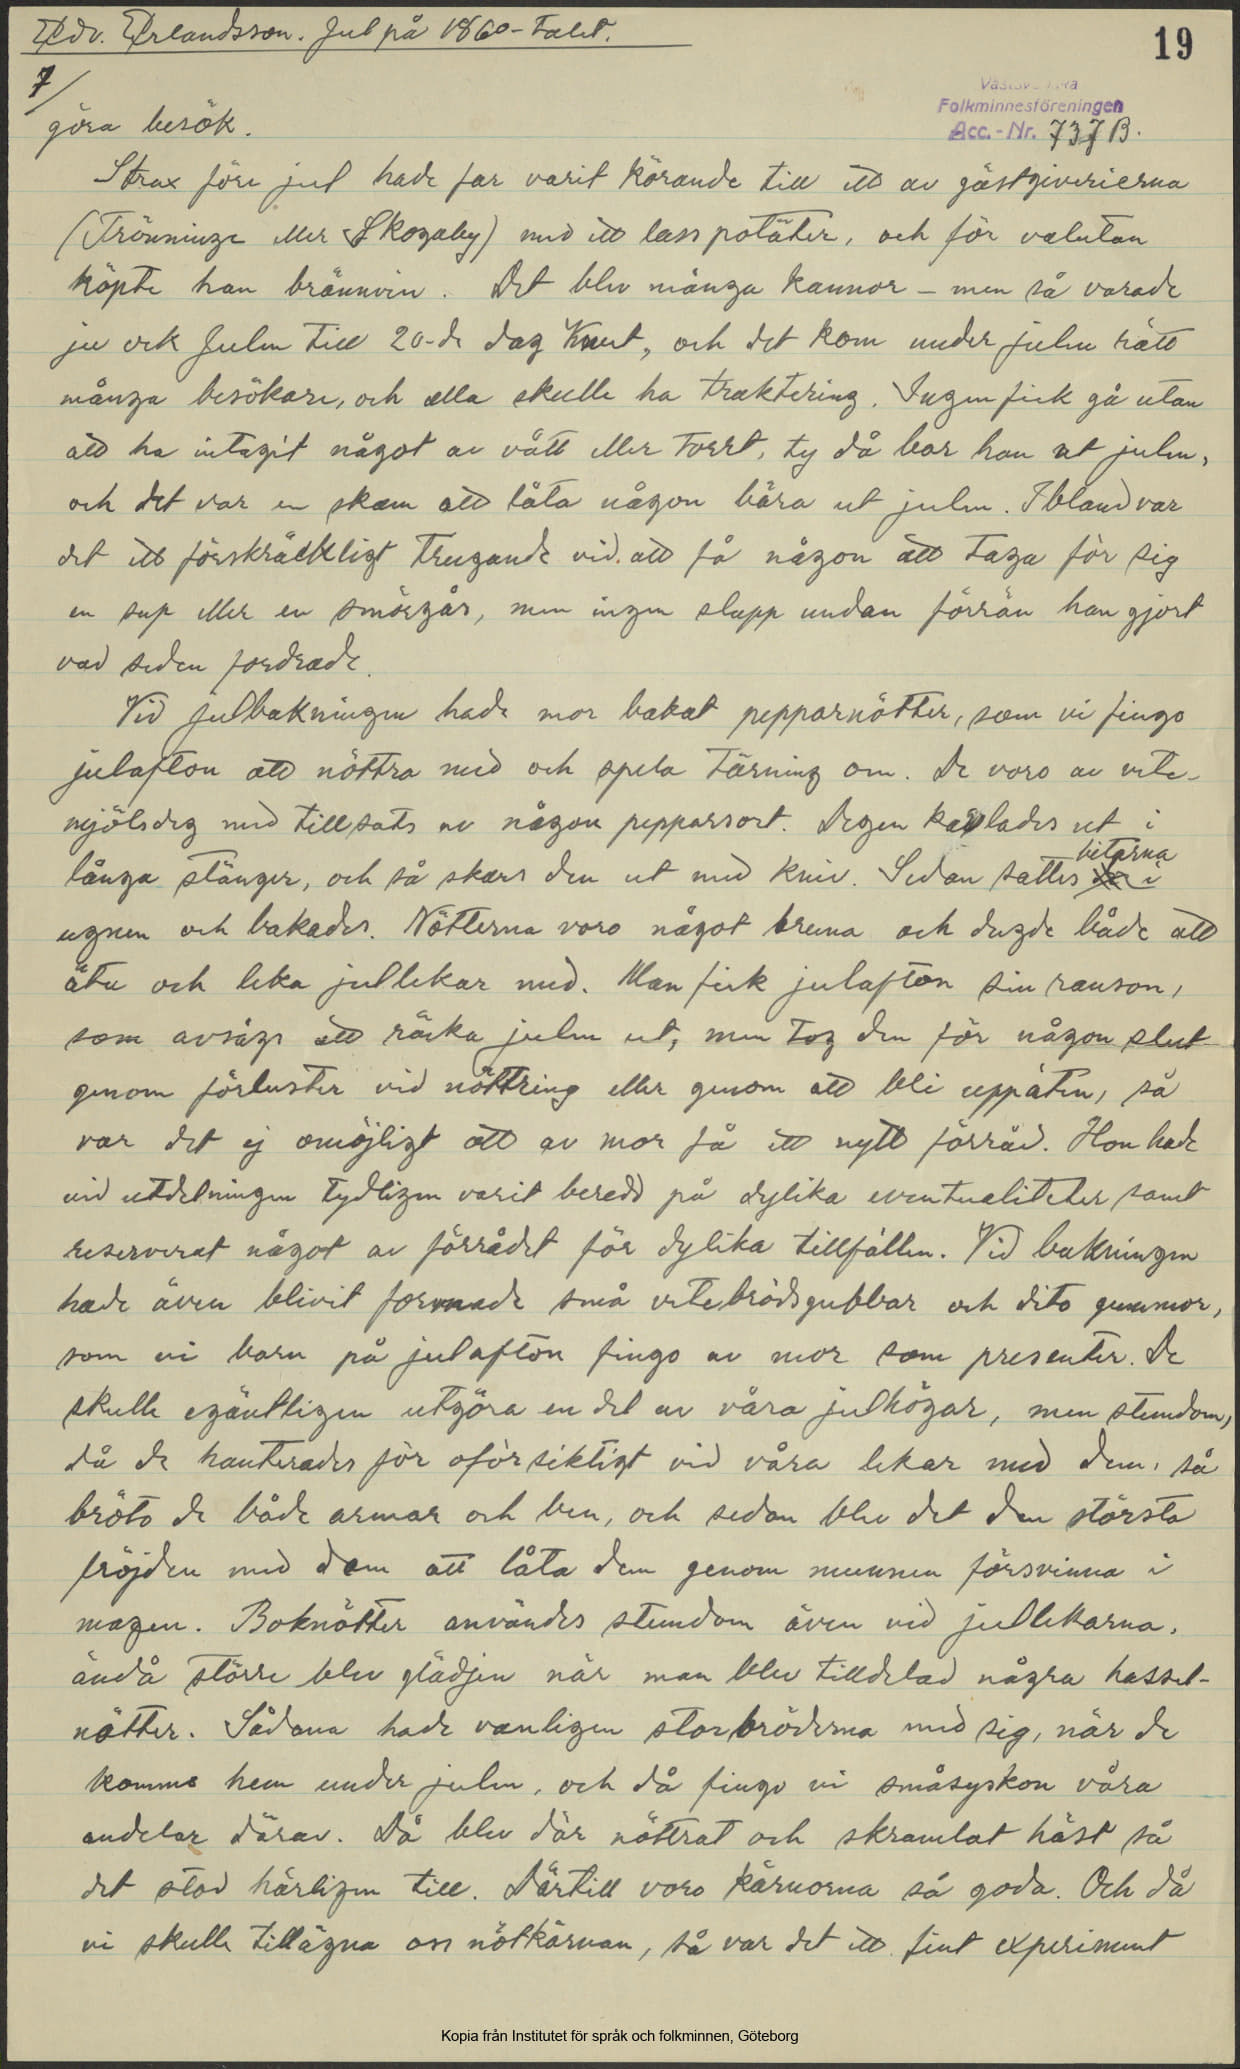 Edv. Erlandsson. Jul på 1860-talet.
19
7/
Folkminnesföreningen
Acc.-Nr. 737 B.
göra besök.
Strax före jul hade far varit körande till ett av gästgiverierna
(Trönninge eller Skogaby) med ett lass potäter, och för valutan
köpte han brännvin. Det blev många kannor – men så varade
ju ock Julen till 20-de dag Knut, och det kom under julen rätt
många besökare, och alla skulle ha traktering. Ingen fick gå utan
att ha intagit något av vått eller torrt, ty då bar han ut julen,
och det var en skam att låta någon bära ut julen. Ibland var
det ett förskräckligt trugande vid att få någon att taga för sig
en sup eller en smörgås, men ingen slapp undan förrän han gjort
vad seden fordrade.
Vid julbakningen hade mor bakat pepparnötter, som vi fingo
julafton att nöttra med och spela tärning om. De voro av vete-
mjölsdeg med tillsats av någon pepparsort. Degen kavlades ut i
långa stänger, och så skars den ut med kniv. Sedan sattes bitarna i
ugnen och bakades. Nötterna voro något bruna och dugde både att
äta och leka jullekar med. Man fick julafton sin ranson,
som avsågs att räcka julen ut, men tog den för någon slut
genom förluster vid nöttring eller genom att bli uppäten, så
var det ej omöjligt att av mor få ett nytt förråd. Hon hade
vid utdelningen tydligen varit beredd på dylika eventualiteter samt
reserverat något av förrådet för dylika tillfällen. Vid bakningen
hade även blivit formade små vetebrödsgubbar och dito gummor,
som vi barn på julafton fingo av mor som presenter. De
skulle egäntligen utgöra en del av våra julhögar, men stundom,
då de hanterades för oförsiktigt vid våra lekar med dem, så
bröto de både armar och ben, och sedan blev det den största
fröjden med dem att låta dem genom munnen försvinna i
magen. Boknötter användes stundom även vid jullekarna,
ändå större blev glädjen när man blev tilldelad några hassel-
nötter. Sådana hade vanligen storbröderna med sig, när de
kommo hem under julen, och då fingo vi småsyskon våra
andelar därav. Då blev där nöttrat och skramlat häst så
det stod härligen till. Därtill voro kärnorna så goda. Och då
vi skulle tillägna oss nötkärnan, så var det ett fint experiment
Kopia från Institutet för språk och folkminnen, Göteborg